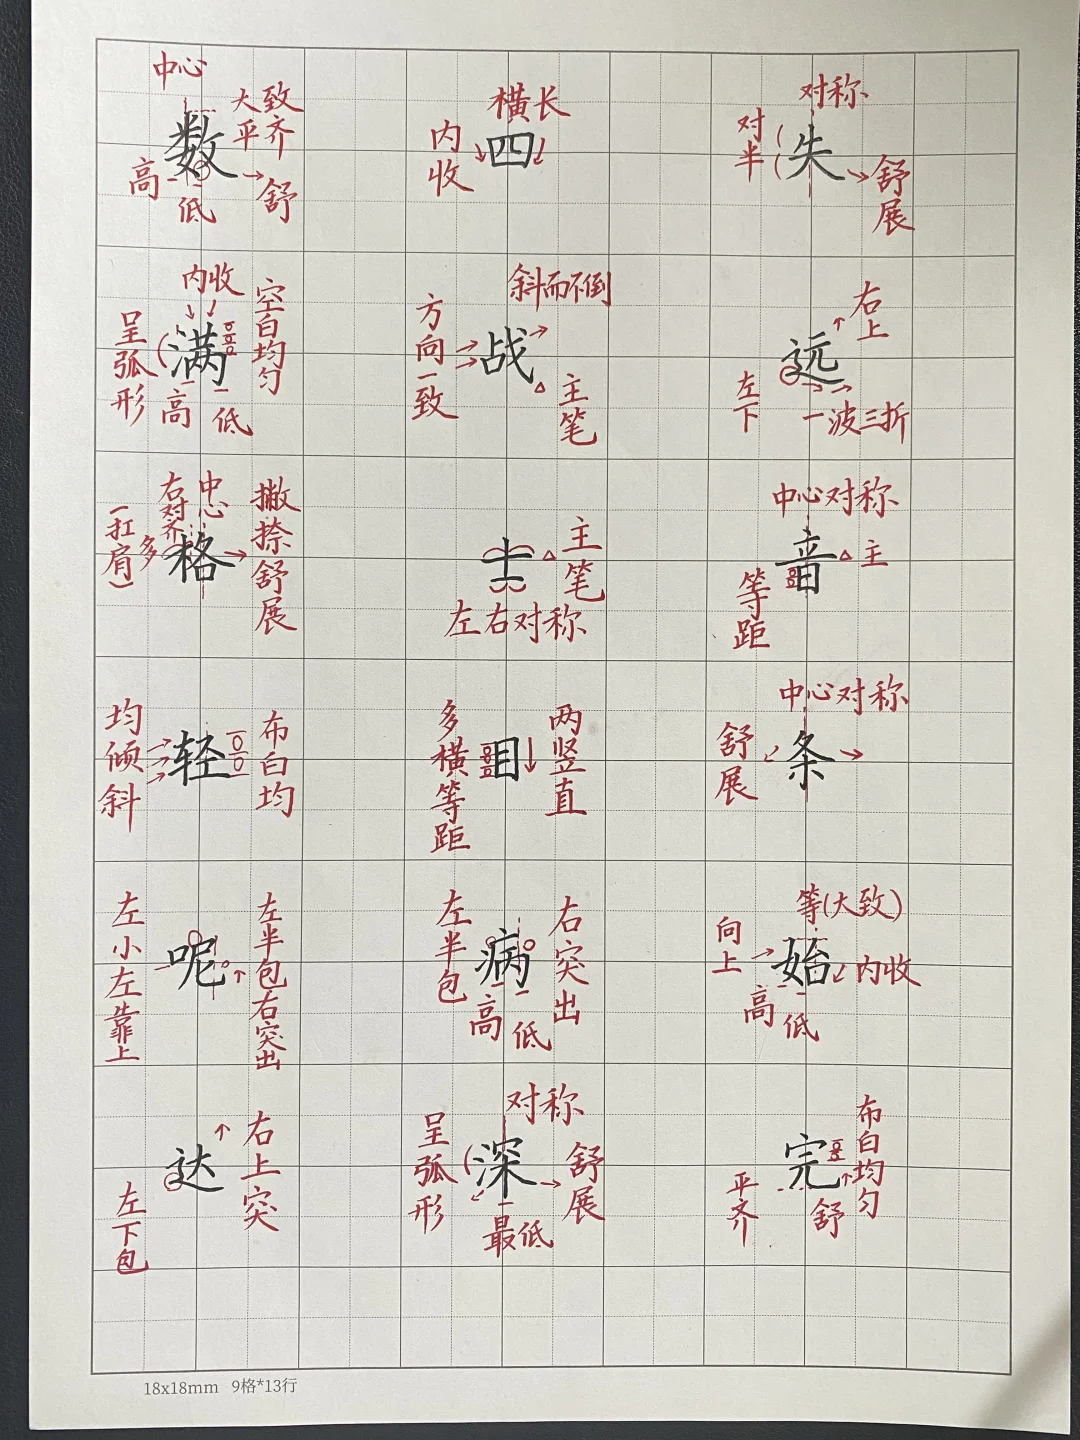 中心
大致
平齐
数
高
低
舒
横长
内收
四
对称
对半
失
舒展
内收
空白均匀
呈弧形
满
高
低
斜而不倒
方向一致
战
主笔
右上
远
左下
一波三折
中心
右对齐
(扛肩)
多
格
撇捺舒展
士
主笔
左右对称
中心对称
音
主
等距
均倾斜
轻
布白均
多横等距
目
两竖直
中心对称
舒展
条
左小左靠上
呢
左半包右突出
左半包
病
右突出
高
低
等(大致)
向上
始
内收
高
低
右上突
达
左下包
对称
呈弧形
深
舒展
最低
布白均匀
完
平齐
舒
18x18mm 9格*13行